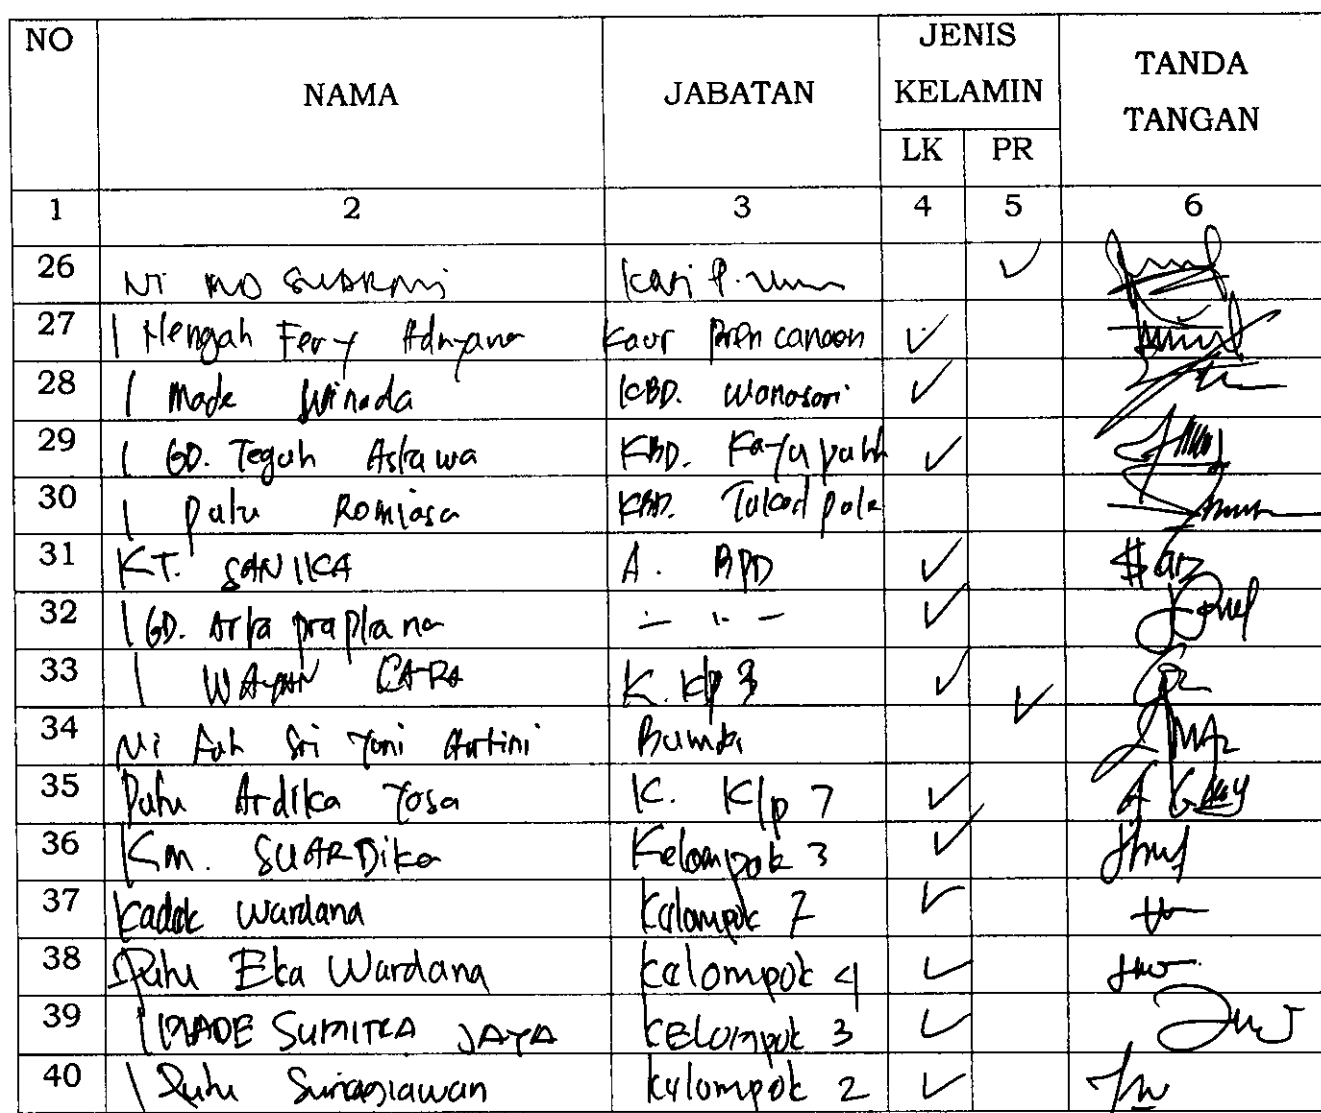 NO NAMA JABATAN JENIS KELAMIN TANDA TANGAN
LK PR
1 2 3 4 5 6
26 Ni MD SUARMI
27 I Nengah Fery Adnyana Kaur Perencanaan ✓
28 I Made Winada KBD. Wanasari ✓
29 I GD. Teguh Astawa KBD. Kayuputih ✓
30 I Putu Romiasa KBD. Tukad pule
31 KT. SANIKA A. BPD ✓
32 I GD. Arta praptana — ıı — ✓
33 I WAYAN CARA K. Klp 3 ✓
34 Ni Sri Yoni Artini ✓
35 Putu Ardika Yosa K. Klp 7 ✓
36 Km. SUARDika Kelompok 3 ✓
37 Kadek Wardana Kelompok 7 ✓
38 Putu Eka Wardana Kelompok 4 ✓
39 I MADE SUMITRA JAYA KELOmpok 3 ✓
40 I Putu Kelompok 2 ✓